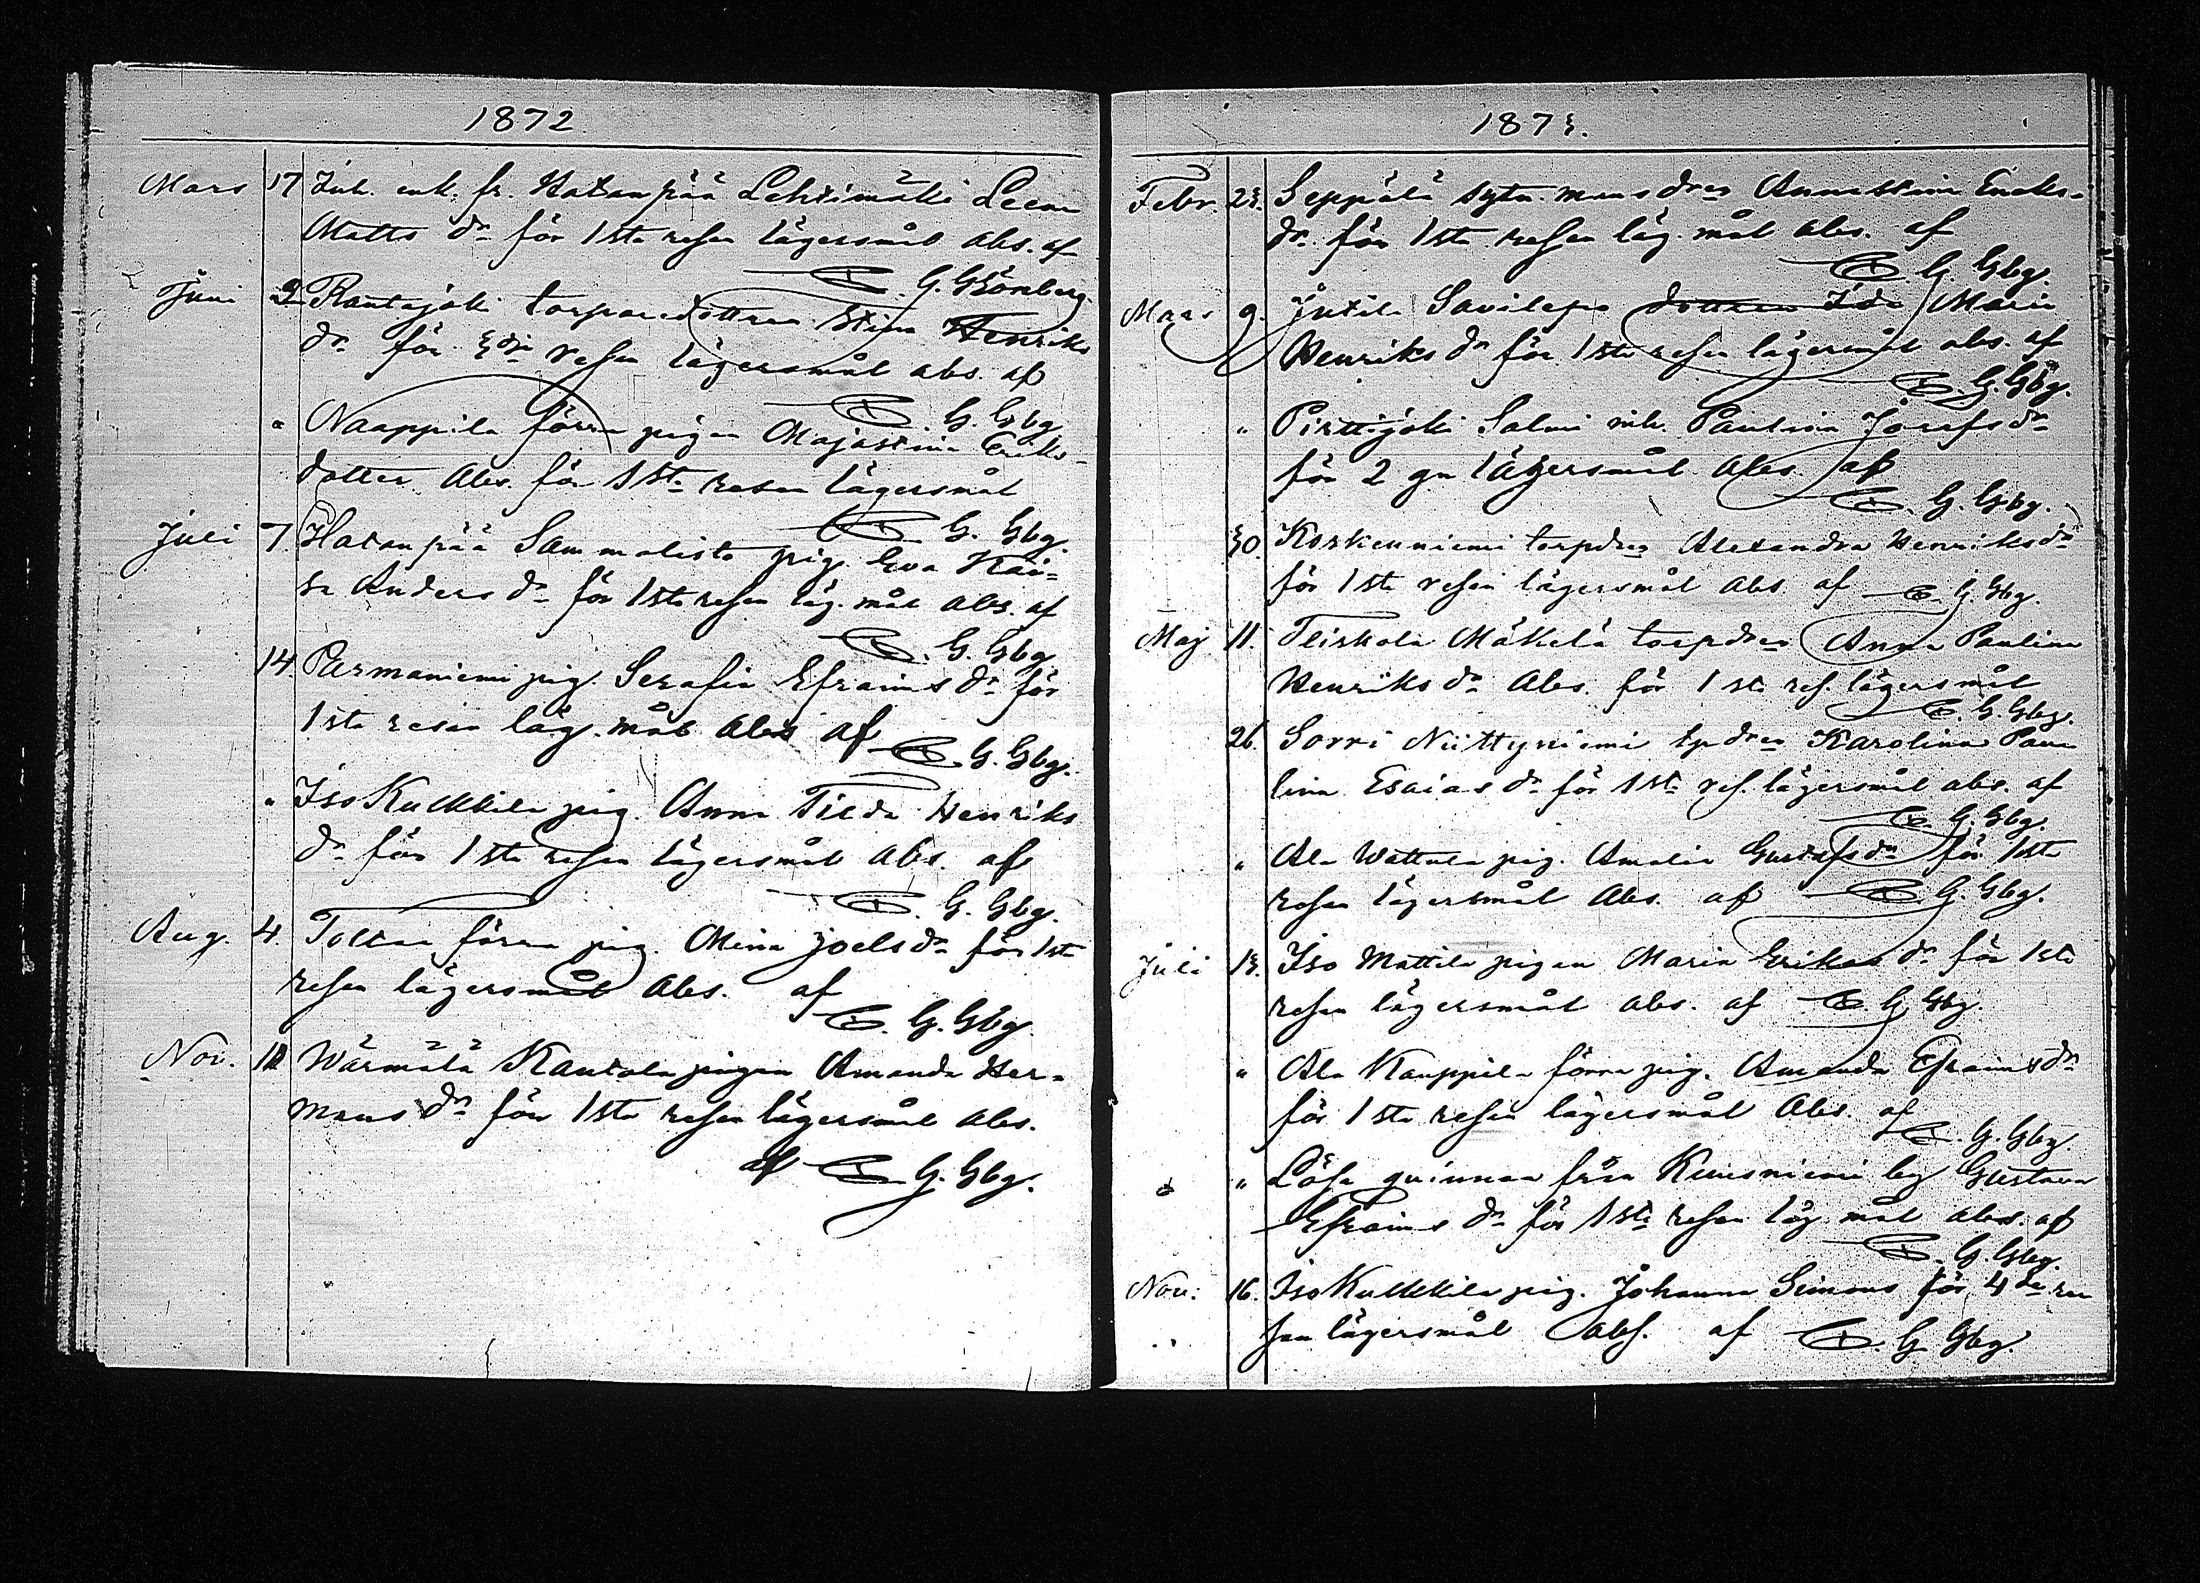 1872
Mars 17 Inh. enk. fr. Hatanpää Lehtimäki Leena
Matts dr för 1sta resan lägersmål Abs. af
C. G. Grönberg
Juni 2 Rantajoki torparedottren Stina Henriks
dr för 3dje resan lägersmål abs. af
C. G. Gbg
" Naappila förra pigan Majastina Eriks-
dotter Abs. för 1sta resan lägersmål
C. G. Gbg.
Juli 7. Hatanpää Sammalisto pig. Eva Kai-
sa Anders dr för 1sta resan läg. mål Abs. af
C. G. Gbg
14. Parmaniemi pig. Serafia Efraims dr för
1sta resan läg. mål Abs af
C. G. Gbg.
" Iso Kulkkila pig. Anna Tilda Henriks
dr för 1sta resan lägersmål Abs. af
C. G. Gbg.
Aug. 4. förra pig. Mina Joels dr för 1sta
resan lägersmål Abs. af
C. G. Gbg.
Nov. Wärmälä Kantola pigan Amanda Her-
mans dr för 1sta resan lägersmål Abs.
af C. G. Gbg.
1873.
Febr. 23. Seppälä sytn. mans dren Annastina Eriks-
dr. för 1sta resan läg. mål Abs. af
C. G. Gbg.
Mars 9. Jutila Savilepo dottren Ida Maria
Henriks dr för 1sta resan lägersmål abs. af
C. G. Gbg.
" Pirttijoki Salmi inh. Paulina Josefs dr
för 2 gn lägersmål Abs. af
C. G. Gbg.
30. Koskenniemi torpdren Alexandra Henriks dr
för 1sta resan lägersmål Abs. af C. G. Gbg.
Maj 11. Fliskola Mäkelä torpdren Anna Paulina
Henriks dr Abs. för 1sta res. lägersmål
C. G. Gbg.
26. Sorri Niittyniemi tpdren Karolina Pau-
lina Esaias dr för 1sta res. lägersmål abs. af
C. G. Gbg.
" Ala Wattula pig. Amalia Gustafs dr för 1sta
resan lägersmål Abs. af C. G. Gbg.
Juli 13. Iso Mattila pigan Maria Eriks dr för 1sta
resan lägersmål abs. af C. G. Gbg.
" Ala Kauppila förra pig. Amanda Efraims dr
för 1sta resan lägersmål Abs. af
C. G. Gbg.
" Lösa qvinnan från by Gustava
Efraims dr för 1sta resan läg. mål abs. af
C. G. Gbg.
Nov. 16. Iso Kulkkila pig. Johanna Simons för 4de re-
san lägersmål abs. af C. G. Gbg.